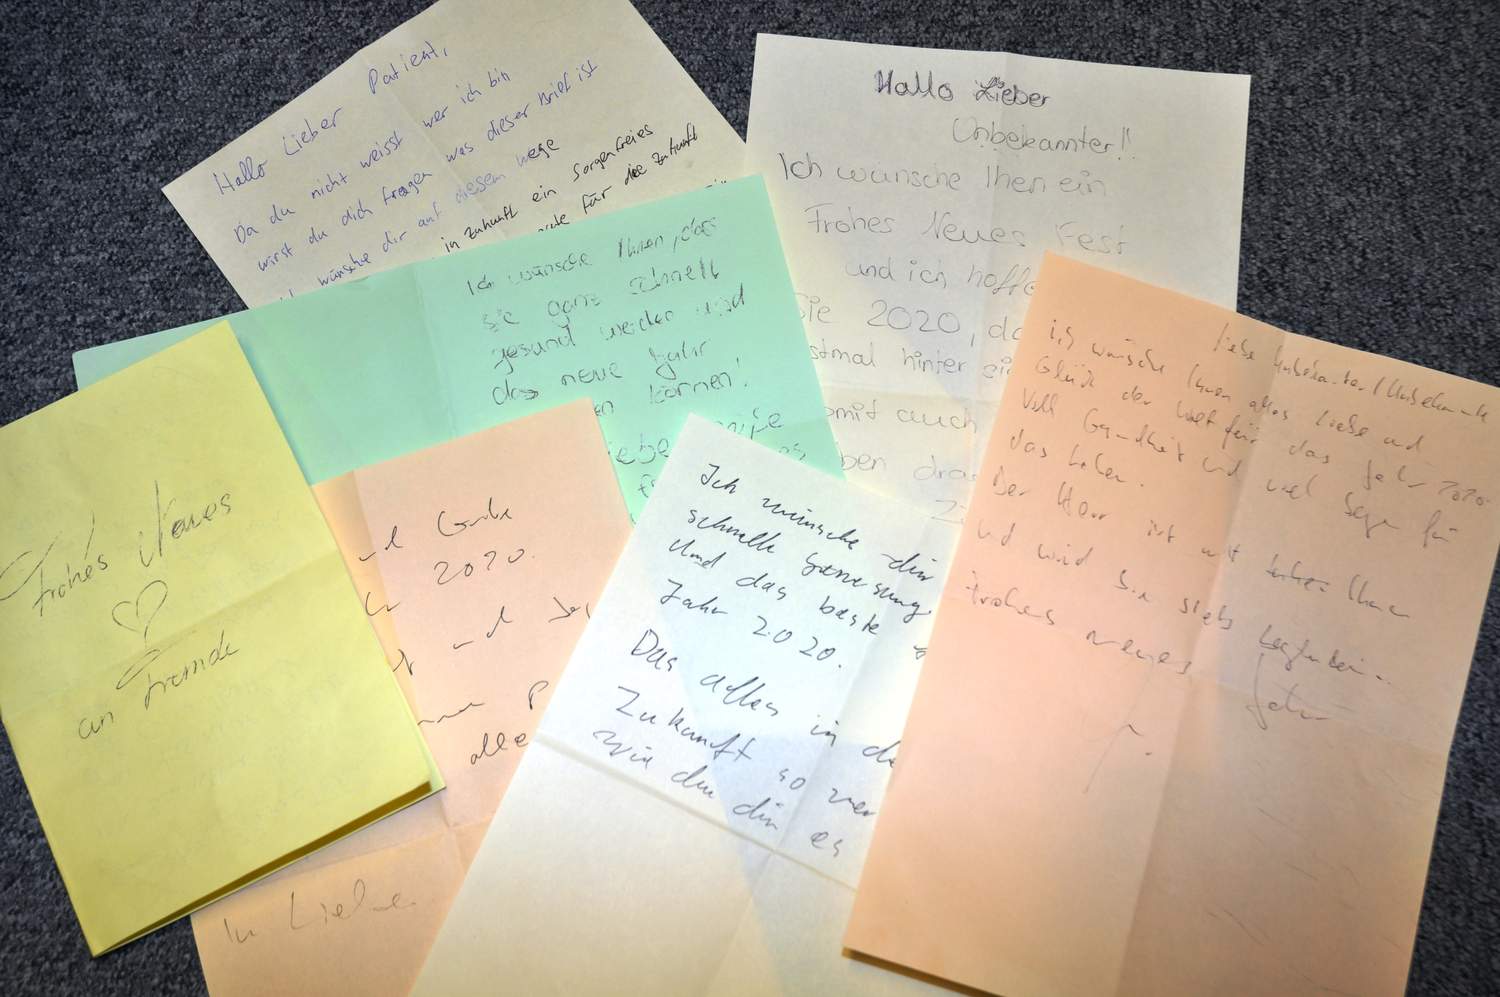 Hallo Lieber Patient,
Da du nicht weisst wer ich bin
wirst du dich fragen was dieser Brief ist
wünsche dir auf diesem wege
in Zukunft ein sorgenfreies
für die Zukunft
Hallo Lieber
Unbekannter!!
Ich wünsche Ihen ein
Frohes Neues Fest
und ich hoffe
Sie 2020, da
stmal hinter ei
omit auch
ben dras
Ich wünsche Ihnen, das
sie ganz schnell
gesund werden und
das neue Jahr
en können!
Liebe
Frohes Neues
an Fremde
und Gnade
2020.
alle
In Liebe
Ich wünsche dir
schnelle Genesung
und das beste
Jahr 2020.
Das alles in de
Zukunft so ver
wie du dir es
Liebe Unbekannter/Unbekannte
ich wünsche Ihnen alles Liebe und
Glück der Welt für das Jahr 2020.
Voll Gesundheit und viel Segen für
das Leben.
Der Herr ist mit Ihnen
und wird Sie stets begleiten.
Frohes neues Jahr